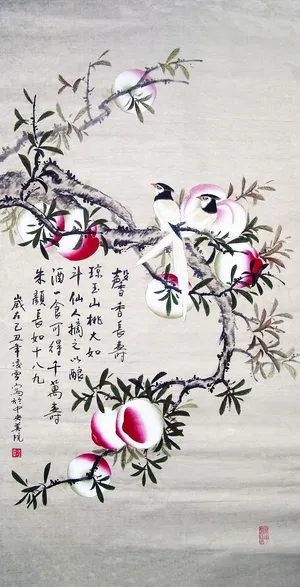 馨香長壽
琼玉山桃大如
斗仙人摘之以釀
酒食可得千萬壽
朱顏長如十八九
歲在己丑年凌雪寫於中央美院